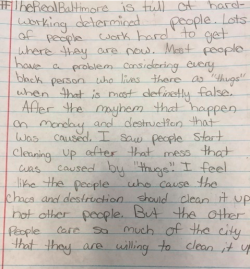 #TheRealBaltimore is full of hard-
working determined people. Lots
of people work hard to get
where they are now. Most people
have a problem considering every
black person who lives there as "thugs"
when that is most definetly false.
After the mayhem that happen
on monday and destruction that
was caused. I saw people start
cleaning up after that mess that
was caused by "thugs" I feel
like the people who cause the
chaos and destruction should clean it up
not other people. But the other
people care so much of the city
that they are willing to clean it up